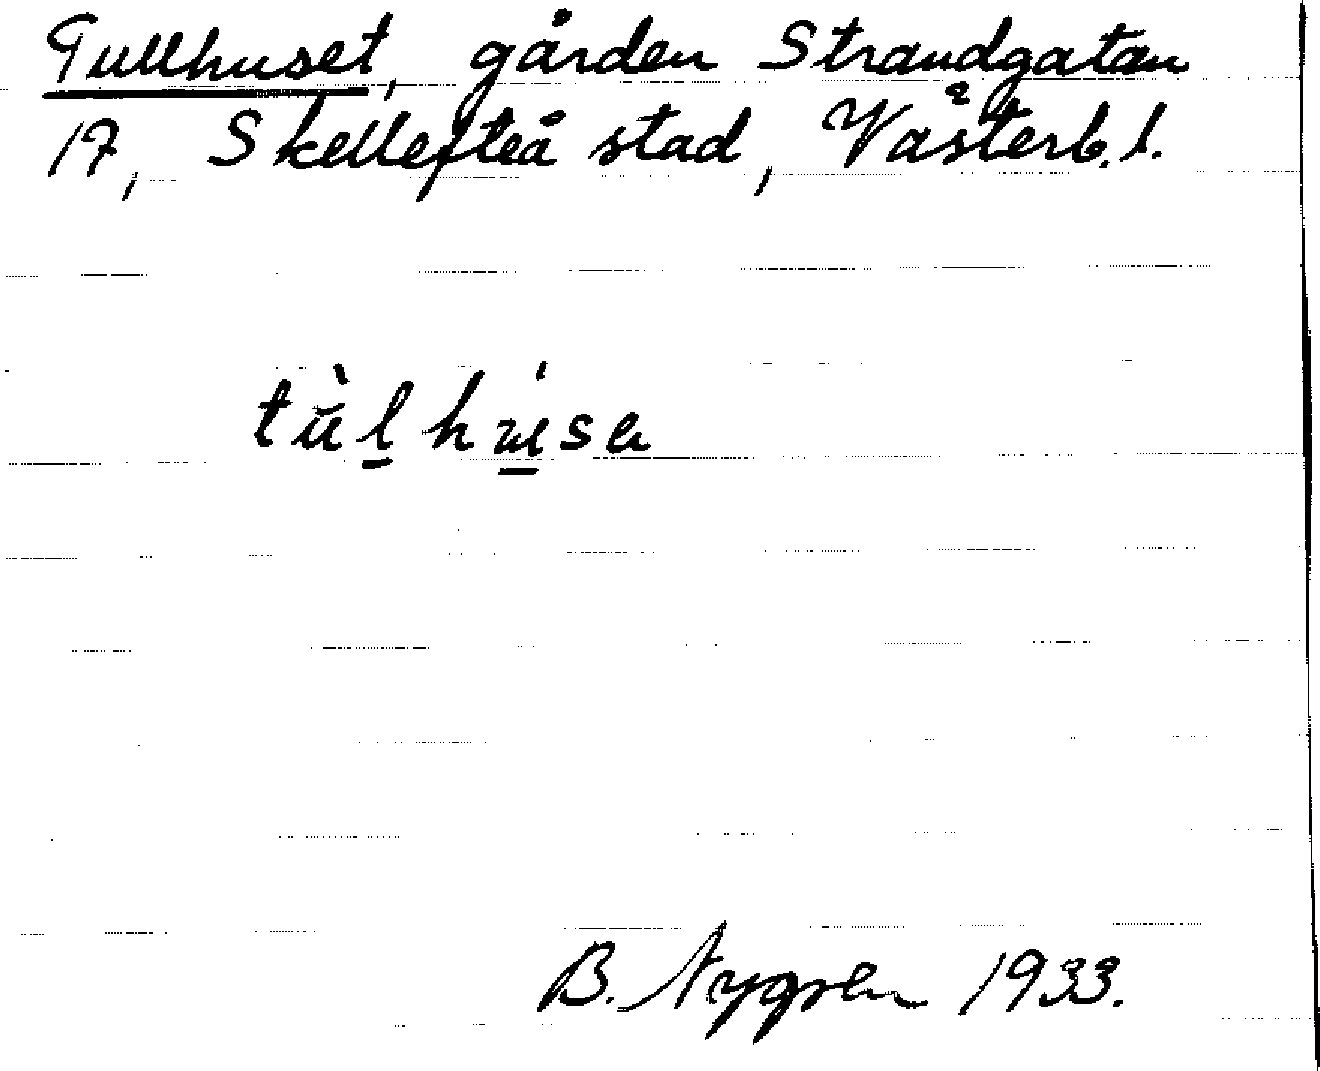 Tullhuset, gården Strandgatan
17, Skellefteå stad, Västerb.l.
tùlhúsa
B. Nygren 1933.